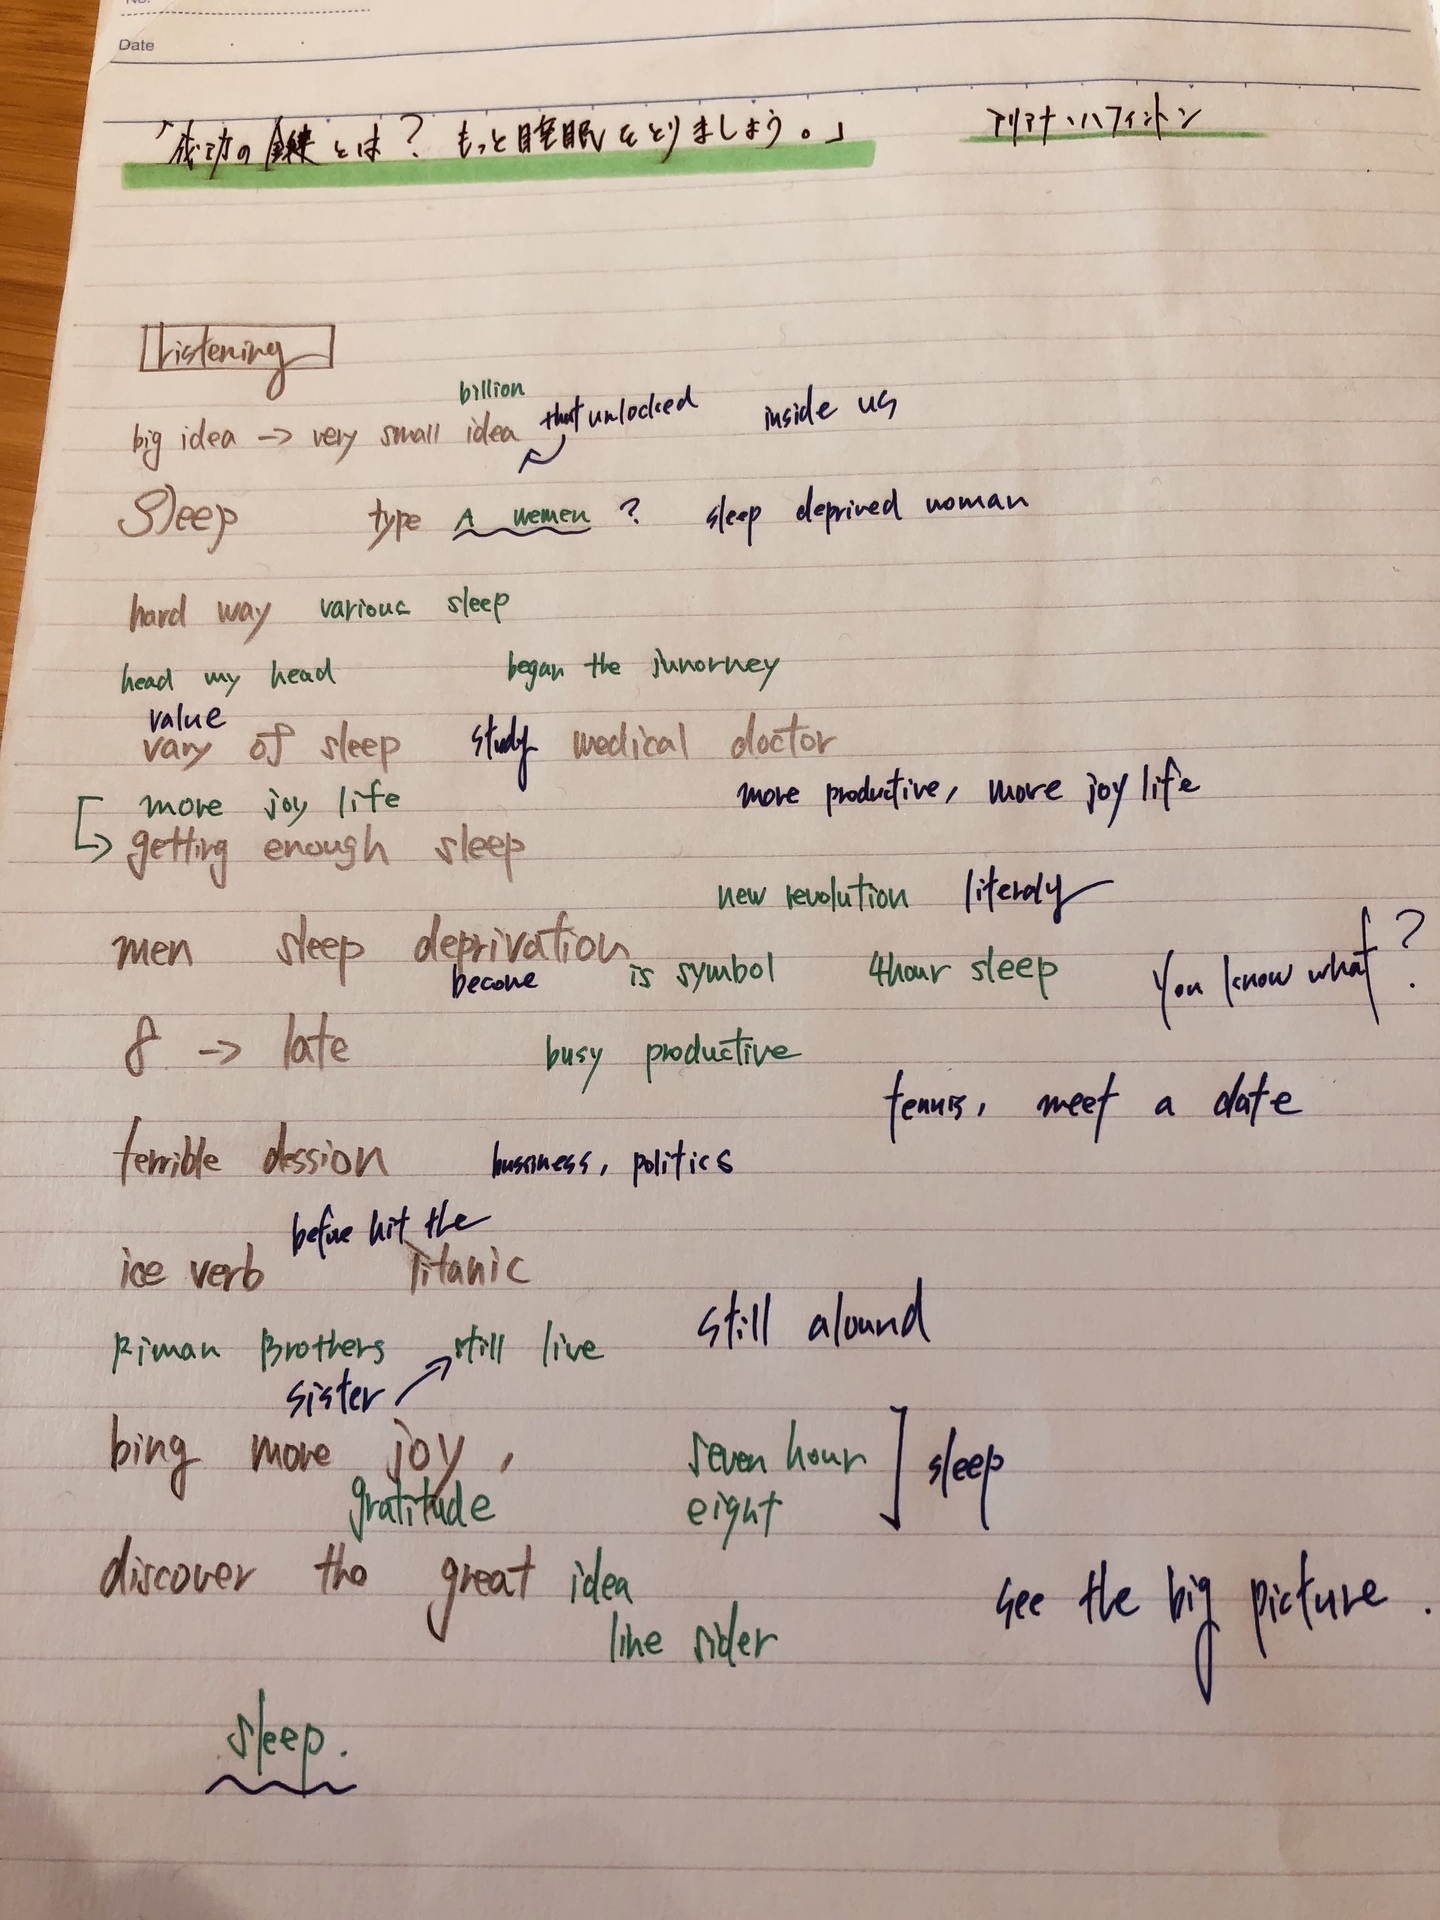 No.
Date
「成功の鍵とは？もっと睡眠をとりましょう。」 アリアナ・ハフィントン
Listening
billion
big idea → very small idea that unlocked inside us
Sleep type A wemen ? sleep deprived woman
hard way various sleep
head my head began the junorney
value
vary of sleep study medical doctor
more joy life more productive, more joy life
getting enough sleep
new revolution literaly
men sleep deprivation
become is symbol 4hour sleep You know what?
8 → late busy productive
tennis, meet a date
terrible dession bussiness, politics
before hit the
ice verb Titanic
Riman Brothers still live still alound
sister
bing more joy, seven hour sleep
gratitude eight
discover the great idea see the big picture.
line sider
sleep.